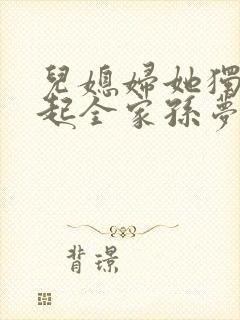 兒媳婦她獨
起全家孫夢
背璟